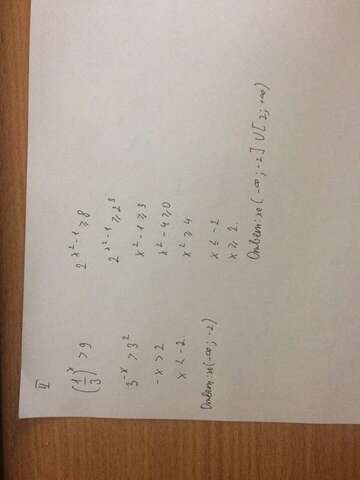 II
(1/3)^x > 9
3^-x > 3^2
-x > 2
x < -2.
Ответ: x∈(-∞; -2)
2^x²-1 ≥ 8
2^x²-1 ≥ 2^3
x²-1 ≥ 3
x²-4 ≥ 0
x² ≥ 4
x ≤ -2
x ≥ 2.
Ответ: x∈(-∞; -2] ∪ [2; +∞)